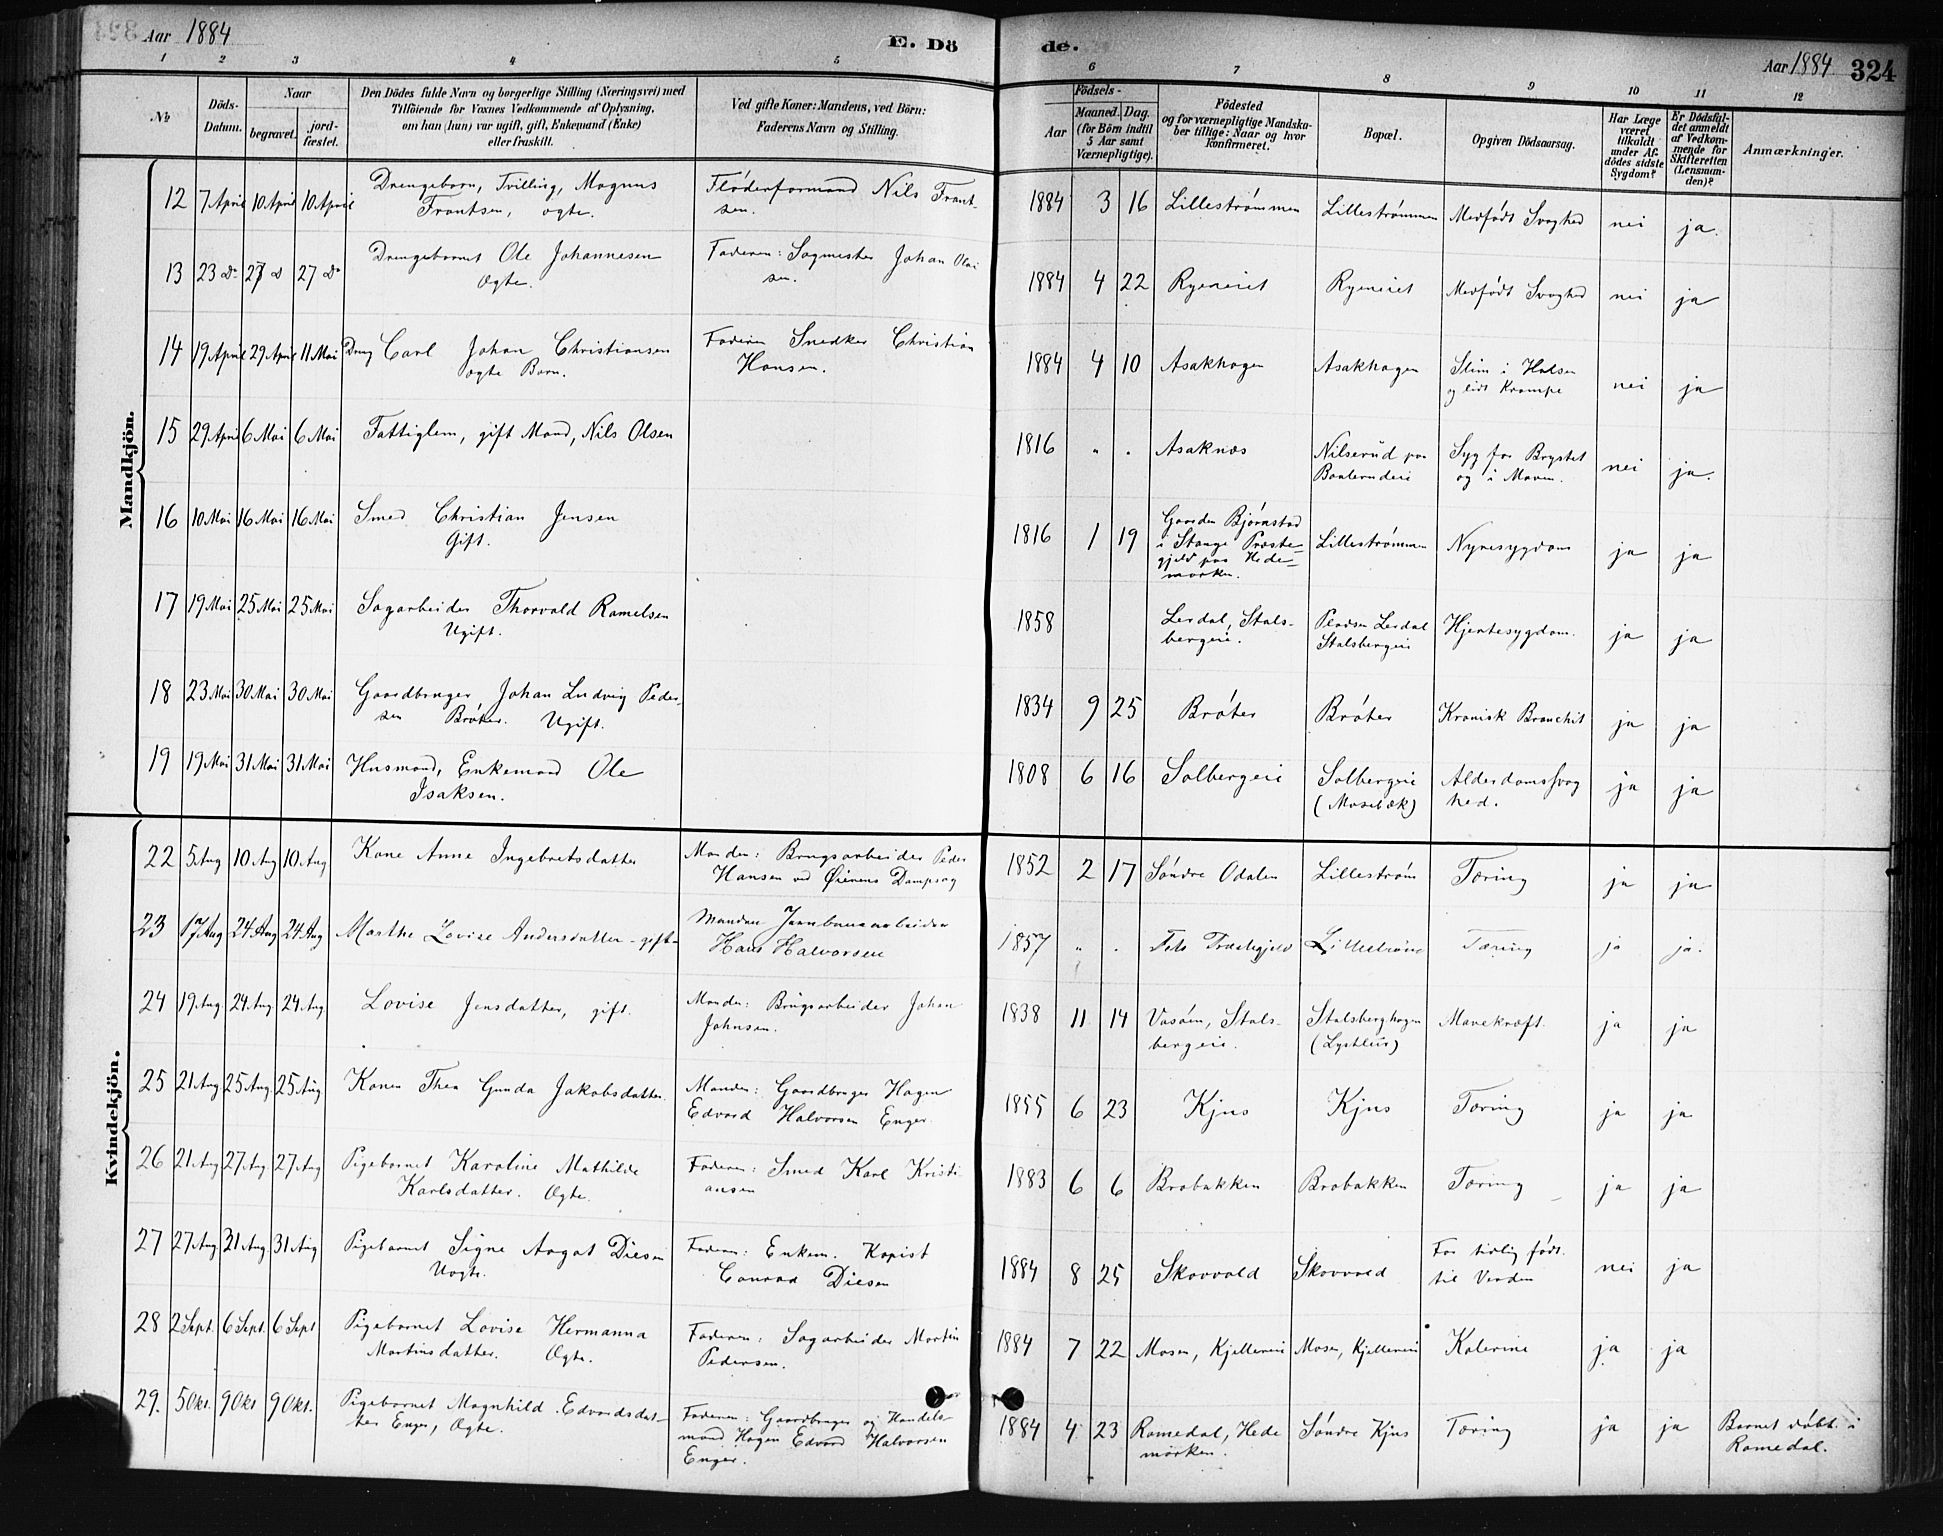 Aar 1884
E. Dö
de.
Aar 1884 324
1 2 3 4 5 6 7 8 9 10 11 12
No
Döds-Datum.
Naar
begravet.
jord-fæstet.
Den Dödes fulde Navn og borgerlige Stilling (Næringsvei) med
Tilföiende for Voxnes Vedkommende af Oplysning,
om han (hun) var ugift, gift, Enkemand (Enke)
eller fraskilt.
Ved gifte Koner: Mandens, ved Börn:
Faderens Navn og Stilling.
Födsels-
Aar
Maaned. Dag.
(for Börn indtil
5 Aar samt
Værnepligtige).
Födested
og for værnepligtige Mandska-
ber tillige: Naar og hvor
konfirmeret.
Bopæl.
Opgiven Dödsaarsag.
Har Læge
været
tilkaldt
under Af-
dödes sidste
Sygdom?
Er Dödsfal-
det anmeldt
af Vedkom-
mende for
Skifteretten
(Lensman-
den)?
Anmærkninger.
Mandkjön.
12 7 April 10 April 10 April Drengebarn, Tvilling, Magnus Fløderformand Nils Frant- 1884 3 16 Lillestrømmen Lillestrømmen Medfødt Svaghed nei ja.
Frantsen, ægte. sen.
13 23 do 27 do 27 do Drengebarnet Ole Johannesen Faderen: Sagmester Johan Olai 1884 4 22 Ryeneiet Ryeneiet Medfødt Svaghed nei ja
Ægte. sen.
14 19 April 29 April 11 Mai Dreng Carl Johan Christiansen Faderen Snedker Christian 1884 4 10 Asakhagen Asakhagen Slim i Halsen nei ja
ægte Barn. Hansen. og lidt Krampe
15 29 April 6 Mai 6 Mai Fattiglem, gift Mand, Nils Olsen 1816 " . Asaknæs Nilserud paa Syg for Brystet nei ja.
og i Maven.
16 10 Mai 16 Mai 16 Mai Smed Christian Jensen 1816 1 19 Gaarden Bjørnstad Lillestrømmen Nyresygdom ja ja
Gift. i Stange Præste-
gjeld paa Hede-
marken.
17 19 Mai 25 Mai 25 Mai Sagarbeider Thorvald Ramelsen 1858 Lerdal, Stals- Pladsen Lerdal Hjertesygdom. ja ja
Ugift. bergeie. Stalsbergeie
18 23 Mai 30 Mai 30 Mai Gaardbruger Johan Ludvig Peder- 1834 9 25 Brøter Brøter Kronisk Bronchit ja ja
sen Brøter. Ugift.
19 19 Mai 31 Mai 31 Mai Husmand, Enkemand Ole 1808 6 16 Solbergeie Solbergeie Alderdomssvag ja ja
Isaksen. (Mosebæk) hed.
Kvindekjön.
22 5 Aug 10 Aug 10 Aug Kone Anne Ingebretsdatter Manden: Brugsarbeider Peder 1852 2 17 Søndre Odalen Lillestrøm Tæring ja ja
Hansen ved Øierens Dampsag
23 17 Aug 24 Aug 24 Aug Marthe Lovise Andersdatter - gift - Manden Jernbanearbeider 1857 " . Fets Præstegjeld Lillestrøm Tæring ja ja.
Hans Halvorsen
24 19 Aug 24 Aug 24 Aug Lovise Jensdatter, gift. Manden: Brugsarbeider Johan 1838 11 14 Vasøien, Stals- Stalsberghagen Mavekræft. ja ja
Johnsen. bergeie.
25 21 Aug 25 Aug 25 Aug Konen Thea Gunda Jakobsdatter. Manden: Gaardbruger Hagen 1855 6 23 Kjus Kjus Tæring ja ja
Edvard Halvorsen Enger.
26 21 Aug 27 Aug 27 Aug Pigebarnet Karoline Mathilde Faderen: Smed Karl Kristi- 1883 6 6 Brobakken Brobakken Tæring ja ja
Karlsdatter. Ægte. ansen
27 27 Aug 31 Aug 31 Aug Pigebarnet Signe Aagot Diesen Faderen: Enkem. Kopist 1884 8 25 Skovvold Skovvold For tidlig født nei ja
Uægte. Conrad Diesen til Verden
28 2 Sept. 6 Sept. 6 Sept Pigebarnet Lovise Hermanna Faderen: Sagarbeider Martin 1884 7 22 Mosen, Kjellereie Mosen, Kjellereie Kolerine ja ja
Martinsdatter. Ægte. Pedersen.
29. 5 Okt. 9 Okt 9 Okt. Pigebarnet Magnhild Edvardsdat- Faderen: Gaardbruger og Handels- 1884 4 23 Romedal, Hede Søndre Kjus Tæring ja ja Barnet døbt i
ter Enger, Ægte. mand Hagen Edvard Halvorsen marken. Romedal.
Enger.